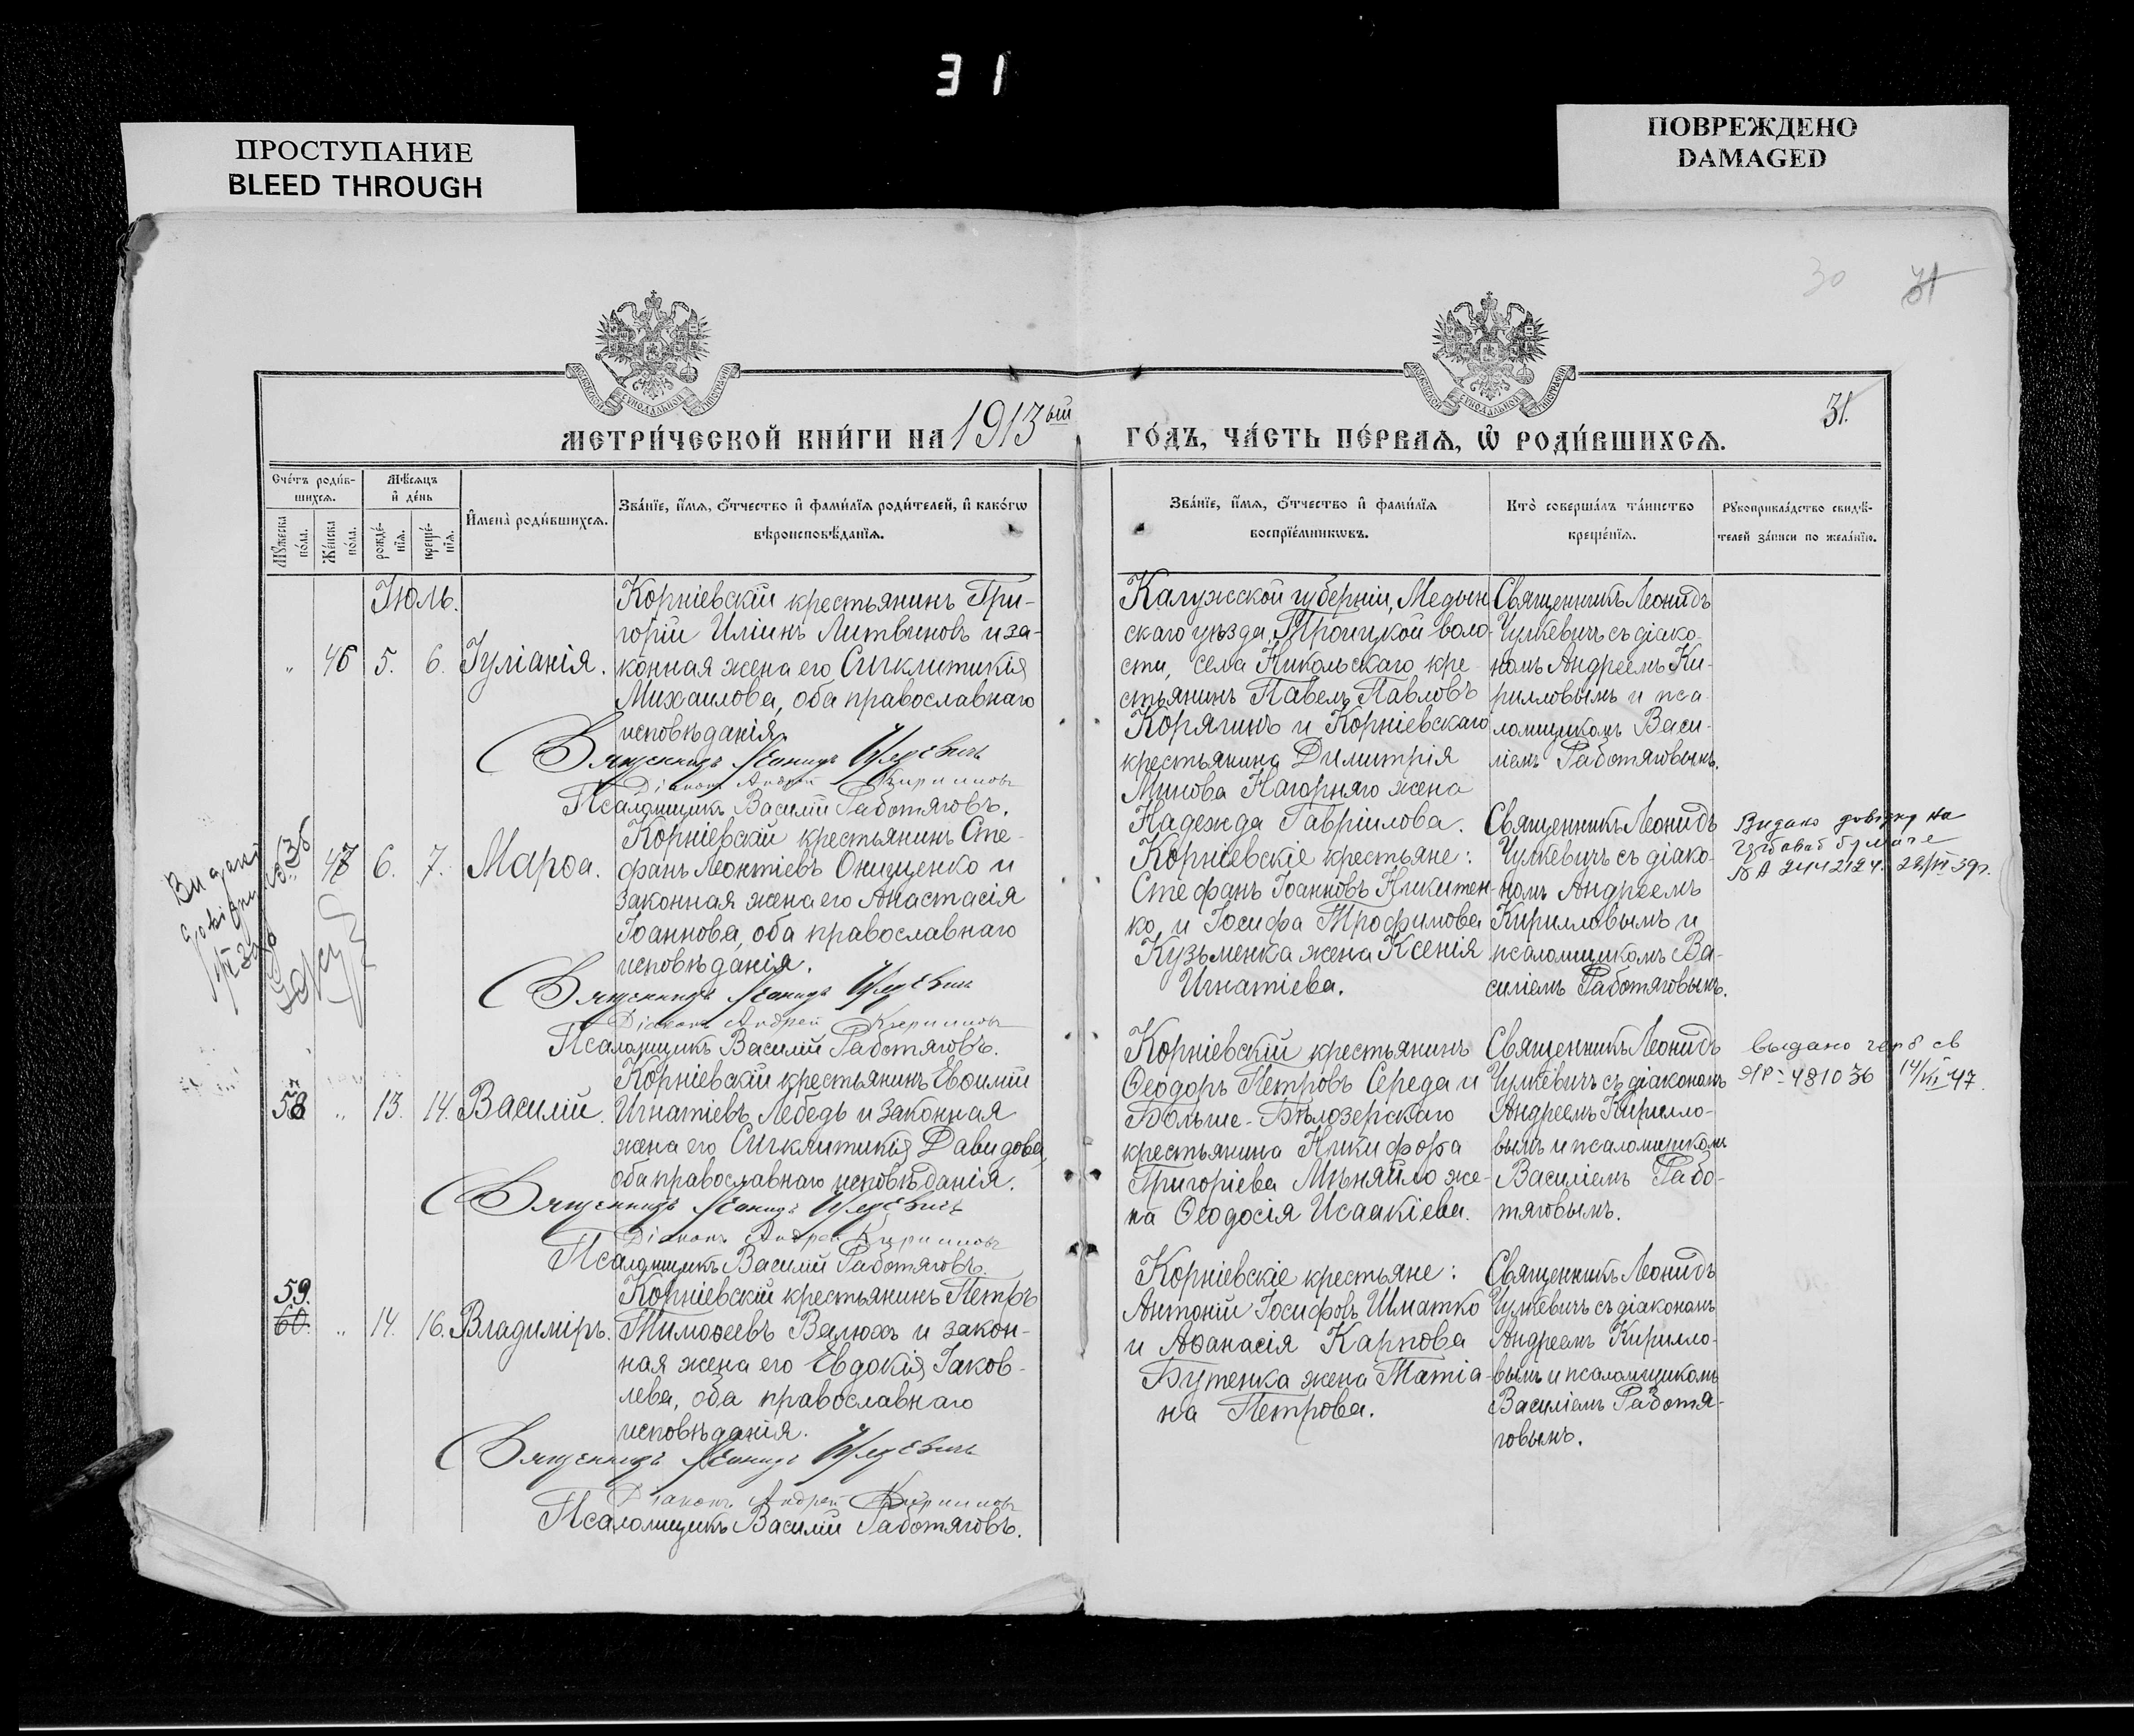 31
ПРОСТУПАНИЕ
BLEED THROUGH
ПОВРЕЖДЕНО
DAMAGED
30
31
31.
МЕТРИ́ЧЕСКОЙ КНИ́ГИ НА 1913ый
ГО́ДЪ, ЧА́СТЬ ПЕ́РВАѦ, Ѡ҆ РОДИ́ВШИХСѦ.
Сче́тъ роди́в-
шихсѧ.
Мѣ́сѧцъ
и҆ де́нь
Мꙋ́жеска
по́ла.
Же́нска
по́ла.
рожде́-
нїѧ.
креще́-
нїѧ.
И҆мена̀ роди́вшихсѧ.
Зва́нїе, и҆́мѧ, ѻ҆́тчество и҆ фами́лїѧ роди́телей, и҆ како́гѡ
вѣроисповѣ́данїѧ.
Зва́нїе, и҆́мѧ, ѻ҆́тчество и҆ фами́лїѧ
воспрїе́мникѡвъ.
Кто̀ соверша́лъ та́инство
креще́нїѧ.
Рꙋкоприкла́дство свидѣ́-
телей за́писи по жела́нїю.
Іюль.
" 46 5. 6. Іуліанія.
Корніевскій крестьянинъ Гри-
горій Иліинъ Литвиновъ и за-
конная жена его Сигклитикія
Михаилова, оба православнаго
исповѣданія.
Священникъ Леонидъ Чулкевичъ
Діаконъ Андрей Кирилловъ
Псаломщикъ Василій Работяговъ.
Калужской губерніи, Медын
скаго уѣзда, Троицкой воло-
сти, села Никольскаго кре-
стьянинъ Павелъ Павловъ
Корягинъ и Корніевскаго
крестьянина Димитрія
Минова Нагорняго жена
Надежда Гавріилова.
Священникъ Леонидъ
Чулкевичъ съ діако-
номъ Андреемъ Ки-
рилловымъ и пса-
ломщикомъ Васи-
ліемъ Работяговымъ.
47 6. 7. Марѳа.
Корніевскій крестьянинъ Сте-
фанъ Леонтіевъ Онищенко и
законная жена его Анастасія
Іоаннова, оба православнаго
исповѣданія.
Священникъ Леонидъ Чулкевичъ
Діаконъ Андрей Кирилловъ
Псаломщикъ Василій Работяговъ.
Корніевскіе крестьяне:
Стефанъ Іоанновъ Никитен-
ко, и Іосифа Трофимова
Кузьменка жена Ксенія
Игнатіева.
Священникъ Леонидъ
Чулкевичъ съ діако-
номъ Андреемъ
Кирилловымъ и
псаломщикомъ Ва-
силіемъ Работяговымъ.
Видано довідку на
58 " 13. 14. Василій.
Корніевскій крестьянинъ Евѳимій
Игнатіевъ Лебедь и законная
жена его Сигклитикія Давидова,
оба православнаго исповѣданія.
Священникъ Леонидъ Чулкевичъ
Діаконъ Андрей Кирилловъ
Псаломщикъ Василій Работяговъ.
Корніевскій крестьянинъ
Ѳеодоръ Петровъ Середа и
Больше-Бѣлозерскаго
крестьянина Никифора
Григоріева Мѣняйло же-
на Ѳеодосія Исаакіева.
Священникъ Леонидъ
Чулкевичъ съ діакономъ
Андреемъ Кирилло-
вымъ и псаломщикомъ
Василіемъ Рабо-
тяговымъ.
выдано св
481036 14/VII 47.
59.
60. " 14. 16. Владиміръ.
Корніевскій крестьянинъ Петръ
Тимоѳеевъ Валюхъ и закон-
ная жена его Евдокія Іаков-
лева, оба православнаго
исповѣданія.
Священникъ Леонидъ Чулкевичъ
Діаконъ Андрей Кирилловъ
Псаломщикъ Василій Работяговъ.
Корніевскіе крестьяне:
Антоній Іосифовъ Шматко
и Аѳанасія Карпова
Бутенка жена Татіа-
на Петрова.
Священникъ Леонидъ
Чулкевичъ съ діакономъ
Андреемъ Кирилло-
вымъ и псаломщикомъ
Василіемъ Работя-
говымъ.